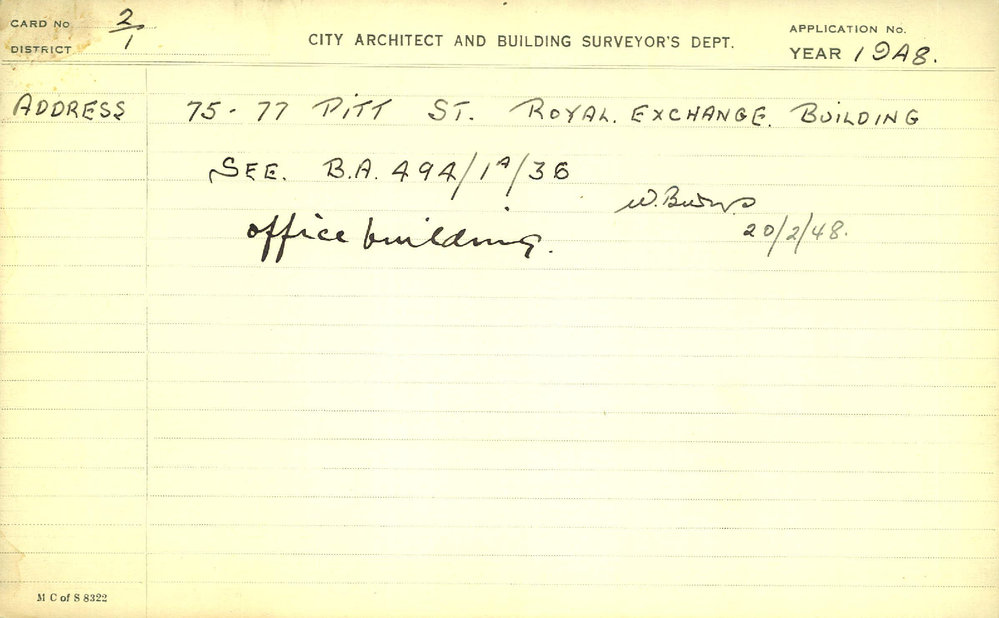 CARD No 2/1
DISTRICT
CITY ARCHITECT AND BUILDING SURVEYOR'S DEPT.
APPLICATION No.
YEAR 1948.
ADDRESS 75-77 PITT ST. ROYAL. EXCHANGE. BUILDING
SEE. B.A. 494/1A/36
W.
office building.
20/2/48.
M C of S 8322